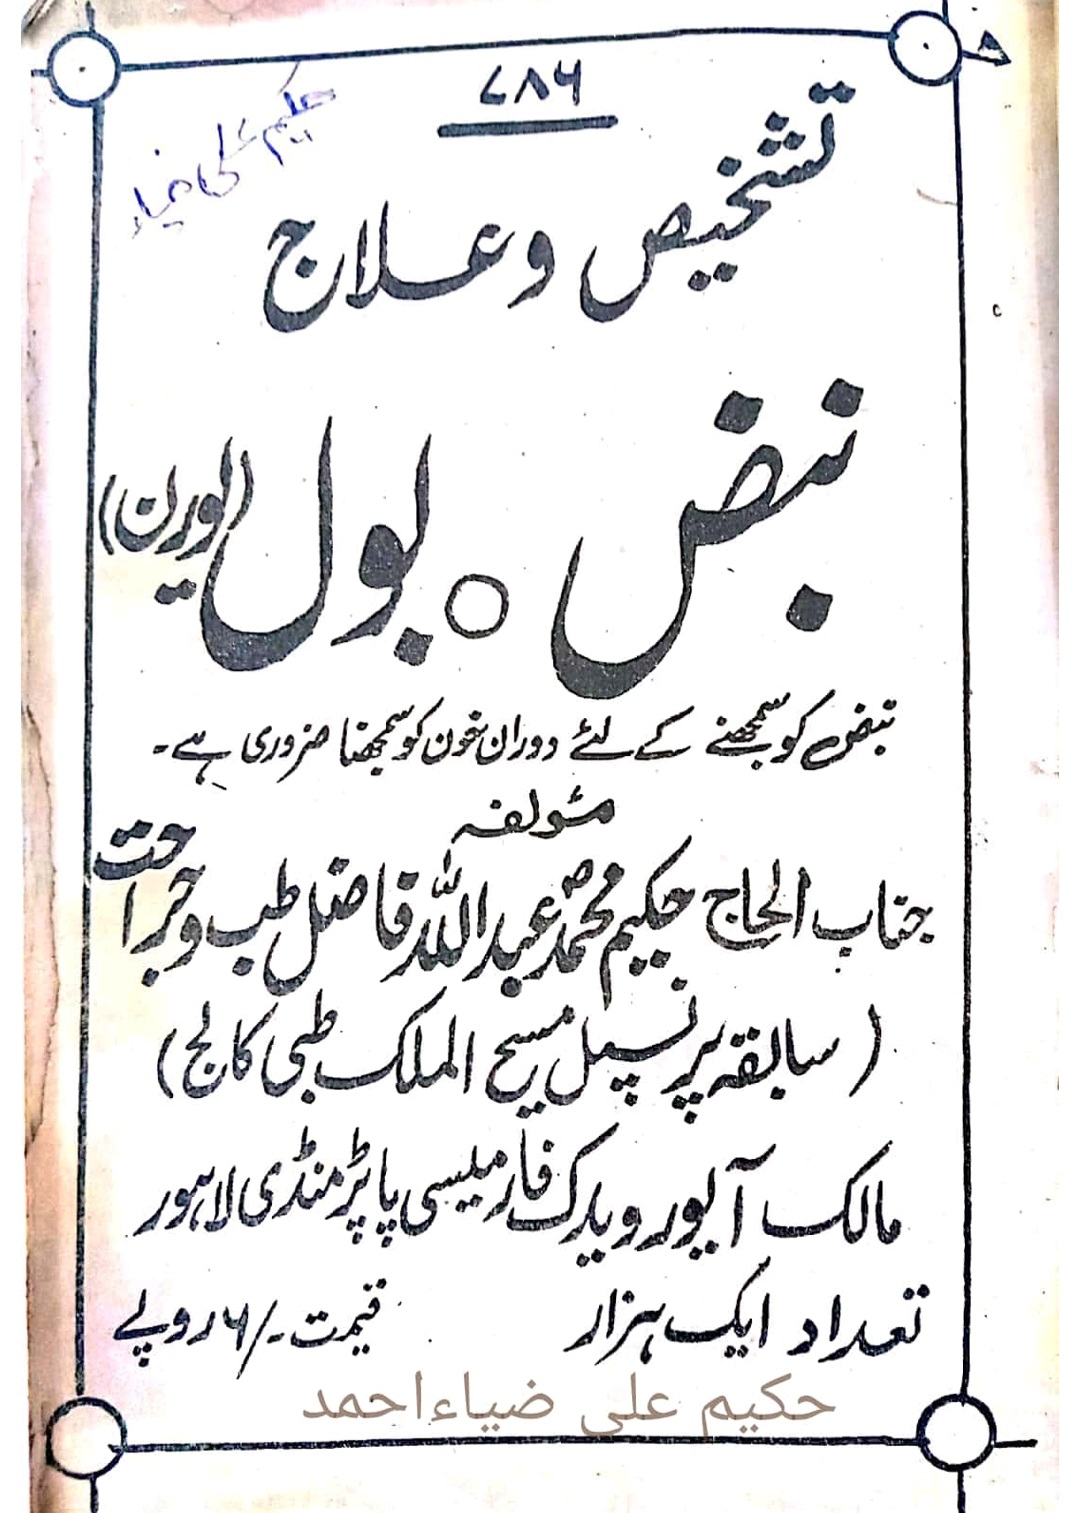 ۷۸۶
حکیم علی ضیاء
تشخیص و علاج
نبض ○ بول (یورن)
نبض کو سمجھنے کے لئے دوران خون کو سمجھنا ضروری ہے۔
مئولفہ
جناب الحاج حکیم محمدؐ عبداللہ فاضل طب و جراحت
(سابقہ پرنسپل مسیح الملک طبی کالج)
مالک آیورویدک فارمیسی پاپڑ منڈی لاہور
تعداد ایک ہزار قیمت -/۶ روپے
حکیم علی ضیاءاحمد